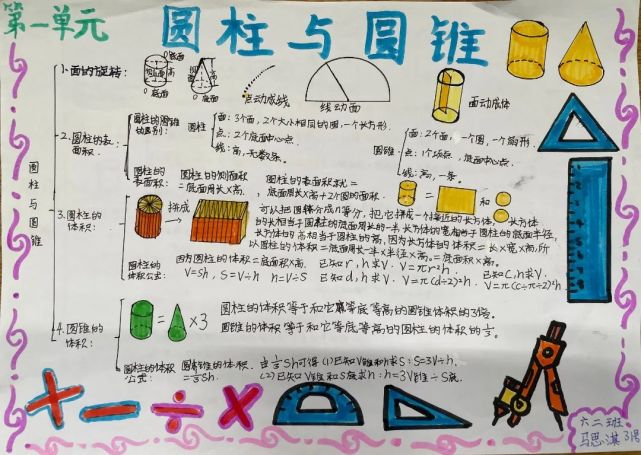 第一单元
圆柱与圆锥
圆柱与圆锥
1.面的旋转:
底面
侧面
高
底面
高
底面
点动成线
线动面
面动成体
2.圆柱的表面积.
圆柱的圆锥
圆柱
面:3个面,2个大小相同的圆,一个长方形.
点:2个底面中心点.
线:高,无数条.
圆锥
面:2个面,一个圆,一个扇形.
点:1个顶点,底面中心点.
线:高,一条.
圆柱的表面积:
圆柱的侧面积
=底面周长×高.
圆柱的表面积就=
底面周长×高+2个圆的面积.
=
和
3.圆柱的体积:
拼成
可以把圆柱分成n等分,把它拼成一个接近的长方体,长方体
的长相当于圆柱的底面周长的一半,长方体的宽相当于圆柱的底面半径,
长方体的高相当于圆柱的高,因为长方体的体积=长×宽×高,所
以圆柱的体积=底面周长一半×半径×高.=底面面积×高.
圆柱的体积公式:
因为圆柱的体积=底面积×高.
V=Sh,S=V÷h h=V÷S
已知r,h求V. V=πr²h
已知d,h求V. V=π(d÷2)²h
已知C,h求V.
V=π(C÷π÷2)²h
4.圆锥的体积:
=
×3
圆柱的体积等于和它等底等高的圆锥的体积的3倍.
圆锥的体积等于和它等底等高的圆柱的体积的⅓.
圆柱的体积公式:
圆锥的体积.
=⅓Sh.
由⅓Sh可得(1)已知V锥和h求S:S=3V÷h.
(2)已知V锥和S底求h:h=3V锥÷S底.
六二班
马思淇 31号